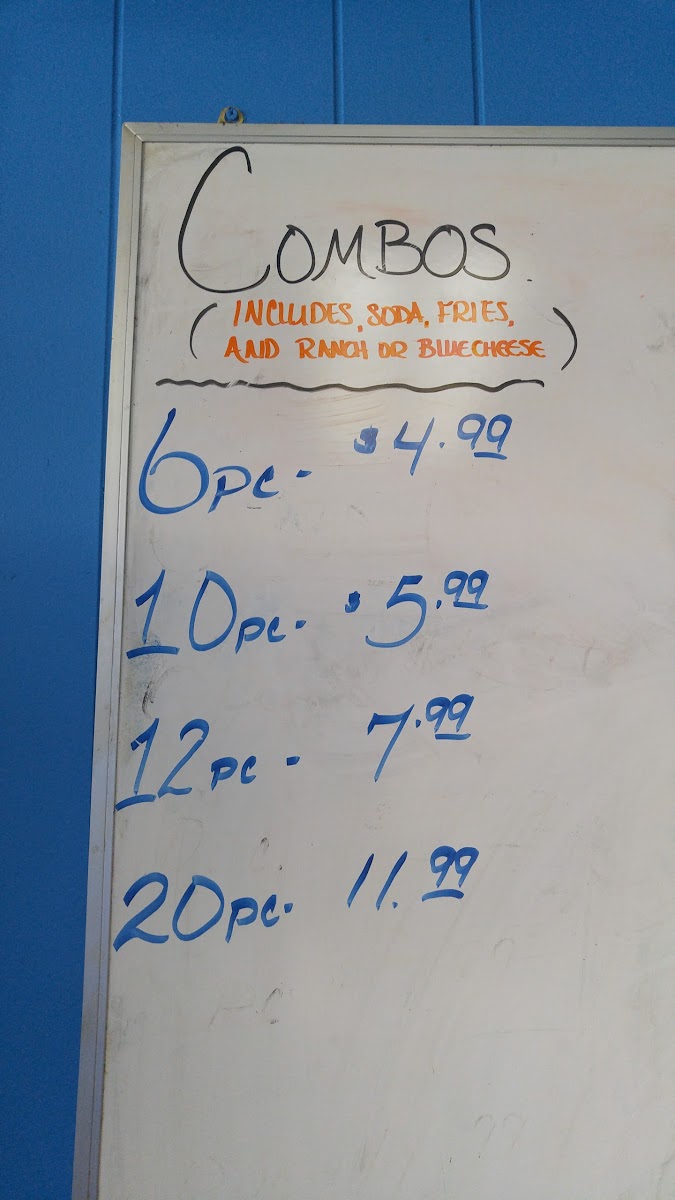 COMBOS.
(INCLUDES, SODA, FRIES,
AND RANCH OR BLUECHEESE)
6pc- $4.99
10pc- $5.99
12pc- 7.99
20pc- 11.99